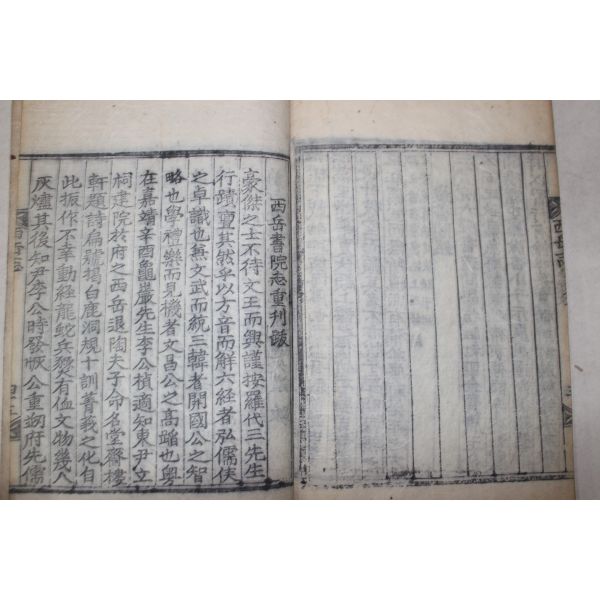 西岳志
西岳書院志重刊跋
豪傑之士不待文王而興謹按羅代三先生
行蹟亶其然乎以方音而解六経者弘儒侯
之卓識也兼文武而統三韓者開國公之智
略也學禮樂而見機者文昌公之高蹈也粤
在嘉靖辛酉龜巖先生李公楨適知東尹立
祠建院於府之西岳退陶夫子命名堂齋樓
軒題詩扁額揭白鹿洞規十訓菁莪之化自
此振作不幸動経龍蛇兵燹有位文物幾入
灰燼其後知尹李公時發暇公重刱府先儒
西岳志